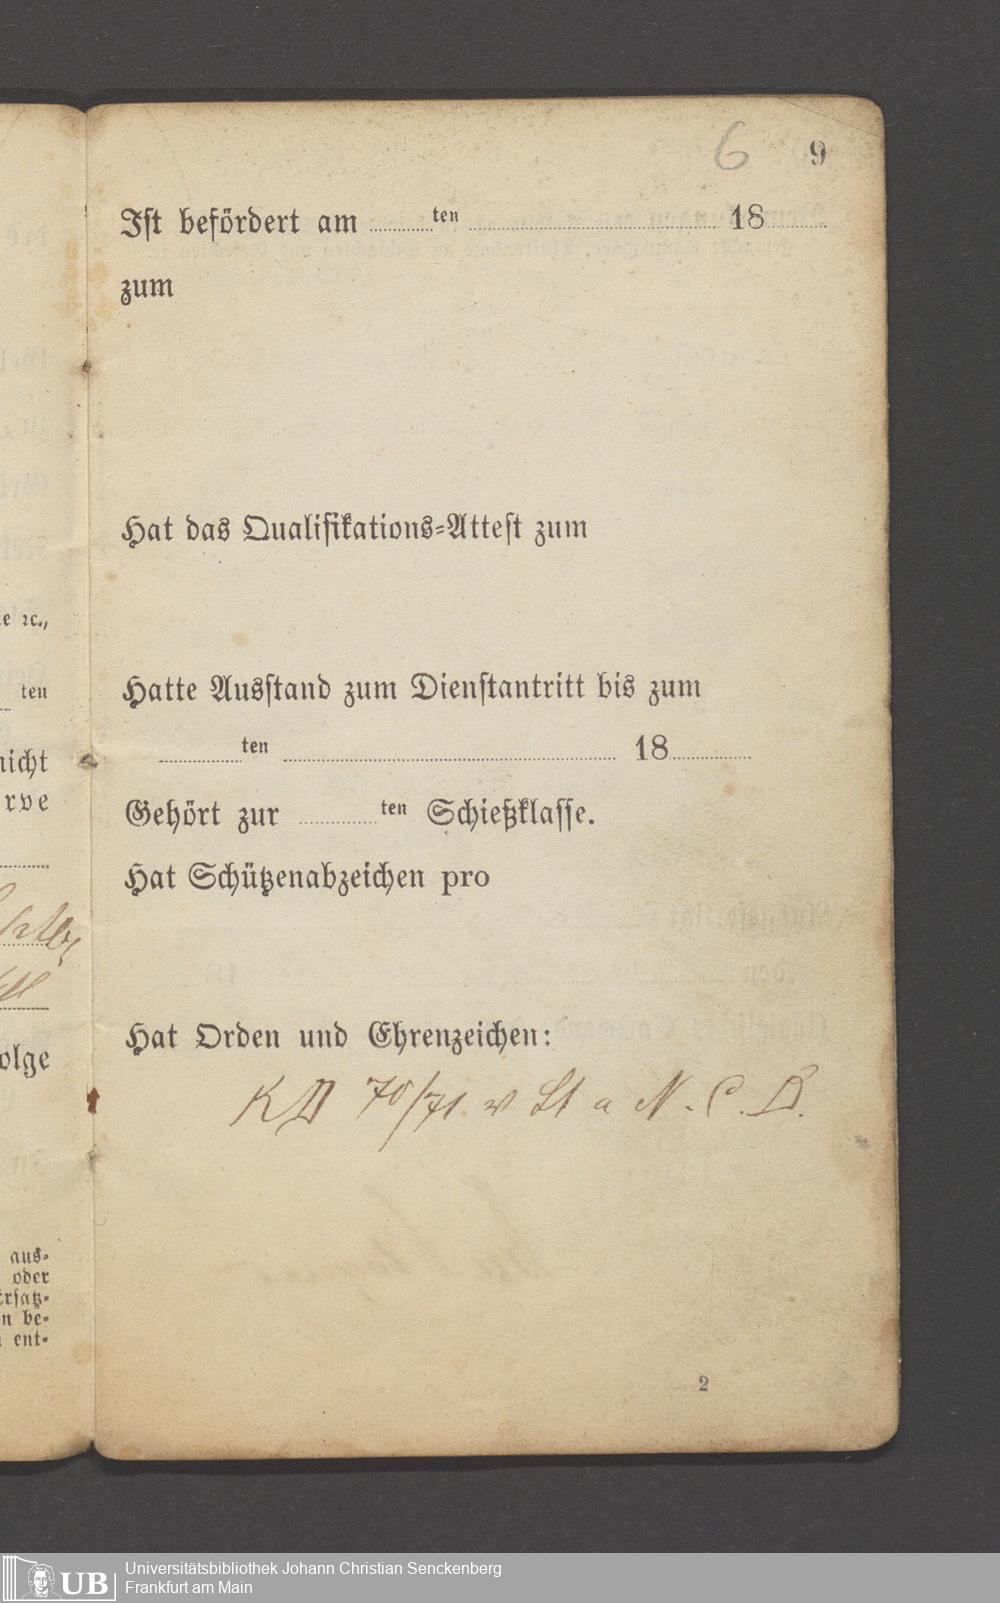 6 9
Ist befördert am ........ten ........................ 18........
zum
Hat das Qualifikations-Attest zum
Hatte Ausstand zum Dienstantritt bis zum
........ten ................................ 18........
Gehört zur ........ten Schießklasse.
Hat Schützenabzeichen pro
Hat Orden und Ehrenzeichen:
KD 70/71 v St a N. C. D.
2
e ꝛc.,
ten
nicht
rve
olge
aus-
oder
ersatz-
n be-
ent-
UB
Universitätsbibliothek Johann Christian Senckenberg
Frankfurt am Main